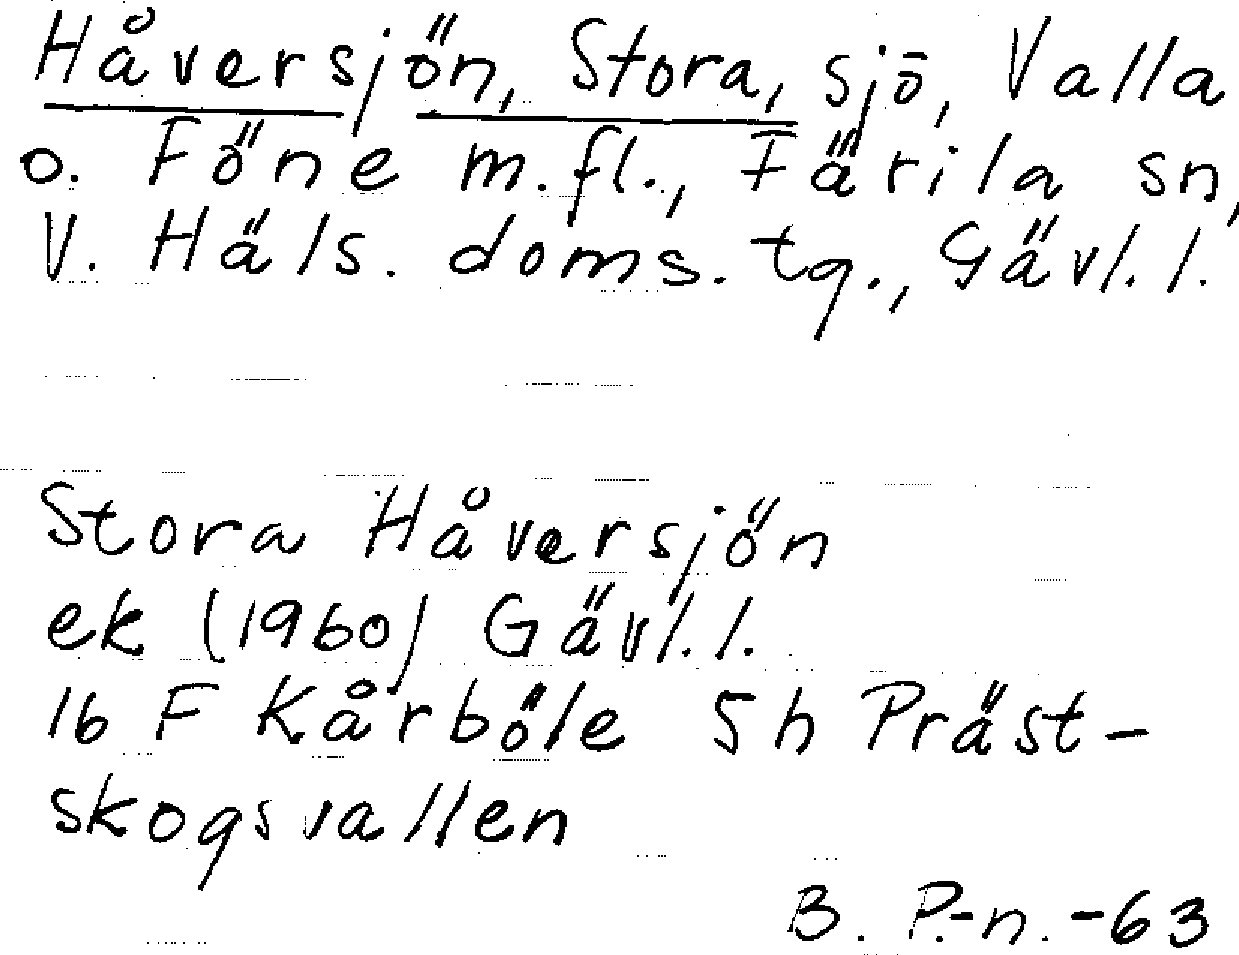 Håversjön, Stora, sjö, Valla
o. Föne m.fl., Färila sn,
V. Häls. doms. tg., Gävl. l.
Stora Håversjön
ek (1960) Gävl. l.
16 F Kårböle 5h Präst-
skogsvallen
B. P.-n. -63